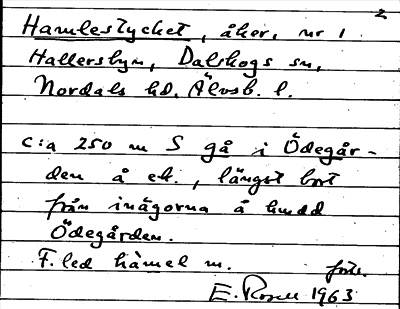 2
Hamlestycket, åker, nr 1
Hallersbyn, Dalskogs sn,
Nordals hd. Älvsb. l.
c:a 250 m S gå i Ödegår-
den å ek., längst bort
från inägorna å hmd
Ödegården.
F. led hàmel m.
forts.
E. Rosell 1963